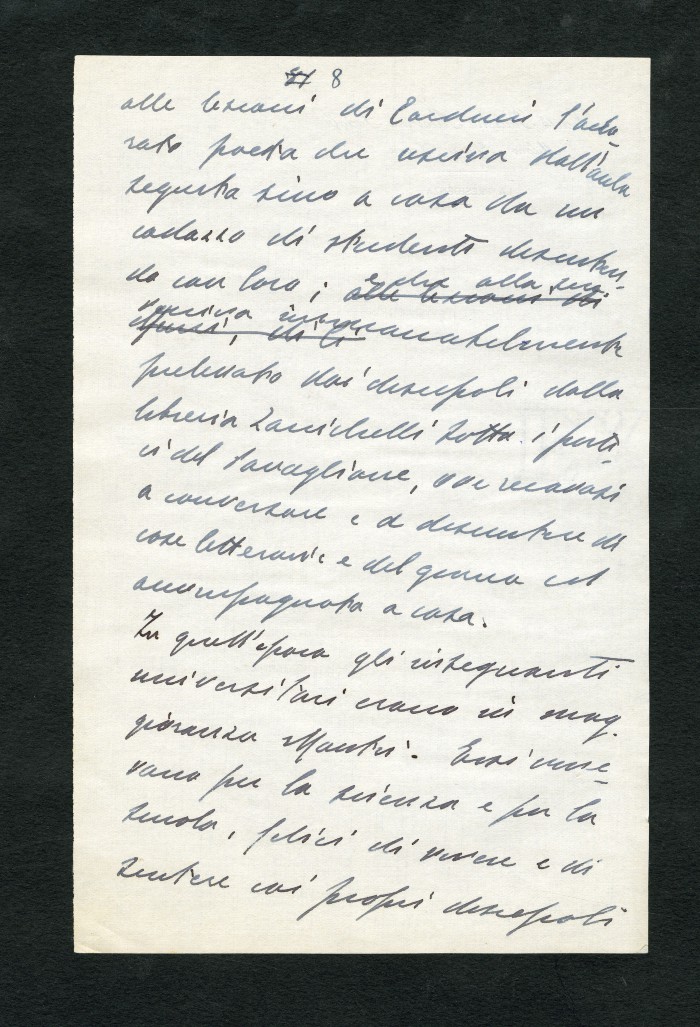 8
alle lezioni di Carducci l'ado-
rato poeta che usciva dall'aula
seguito sino a casa da un
codazzo di studenti discuten-
do con loro; e che alla sera
alle lezioni di
veniva immancabilmente
prelevato dai discepoli dalla
libreria Zanichelli sotto i porti-
ci del Pavaglione, ove recavasi
a conversare e a discutere di
cose letterarie e del giorno ed
accompagnato a casa.
In quell'epoca gli insegnanti
universitari erano in mag-
gioranza Maestri. Essi vive-
vano per la scienza e per la
scuola, felici di vivere e di
sentere coi propri discepoli